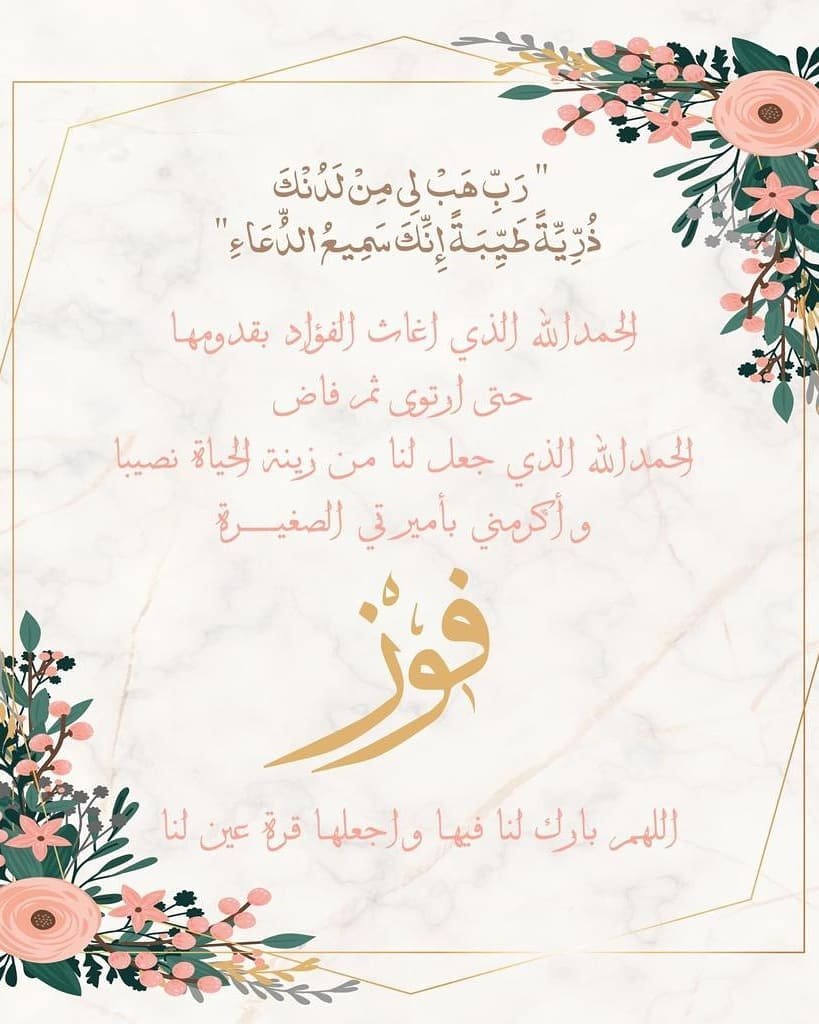 " رَبِّ هَبْ لِي مِنْ لَدُنْكَ
ذُرِّيَّةً طَيِّبَةً إِنَّكَ سَمِيعُ الدُّعَاءِ "
الحمدالله الذي اغاث الفؤاد بقدومها
حتى ارتوى ثم فاض
الحمدالله الذي جعل لنا من زينة الحياة نصيبا
وأكرمني بأميرتي الصغيـــرة
فوز
اللهم بارك لنا فيها واجعلها قرة عين لنا